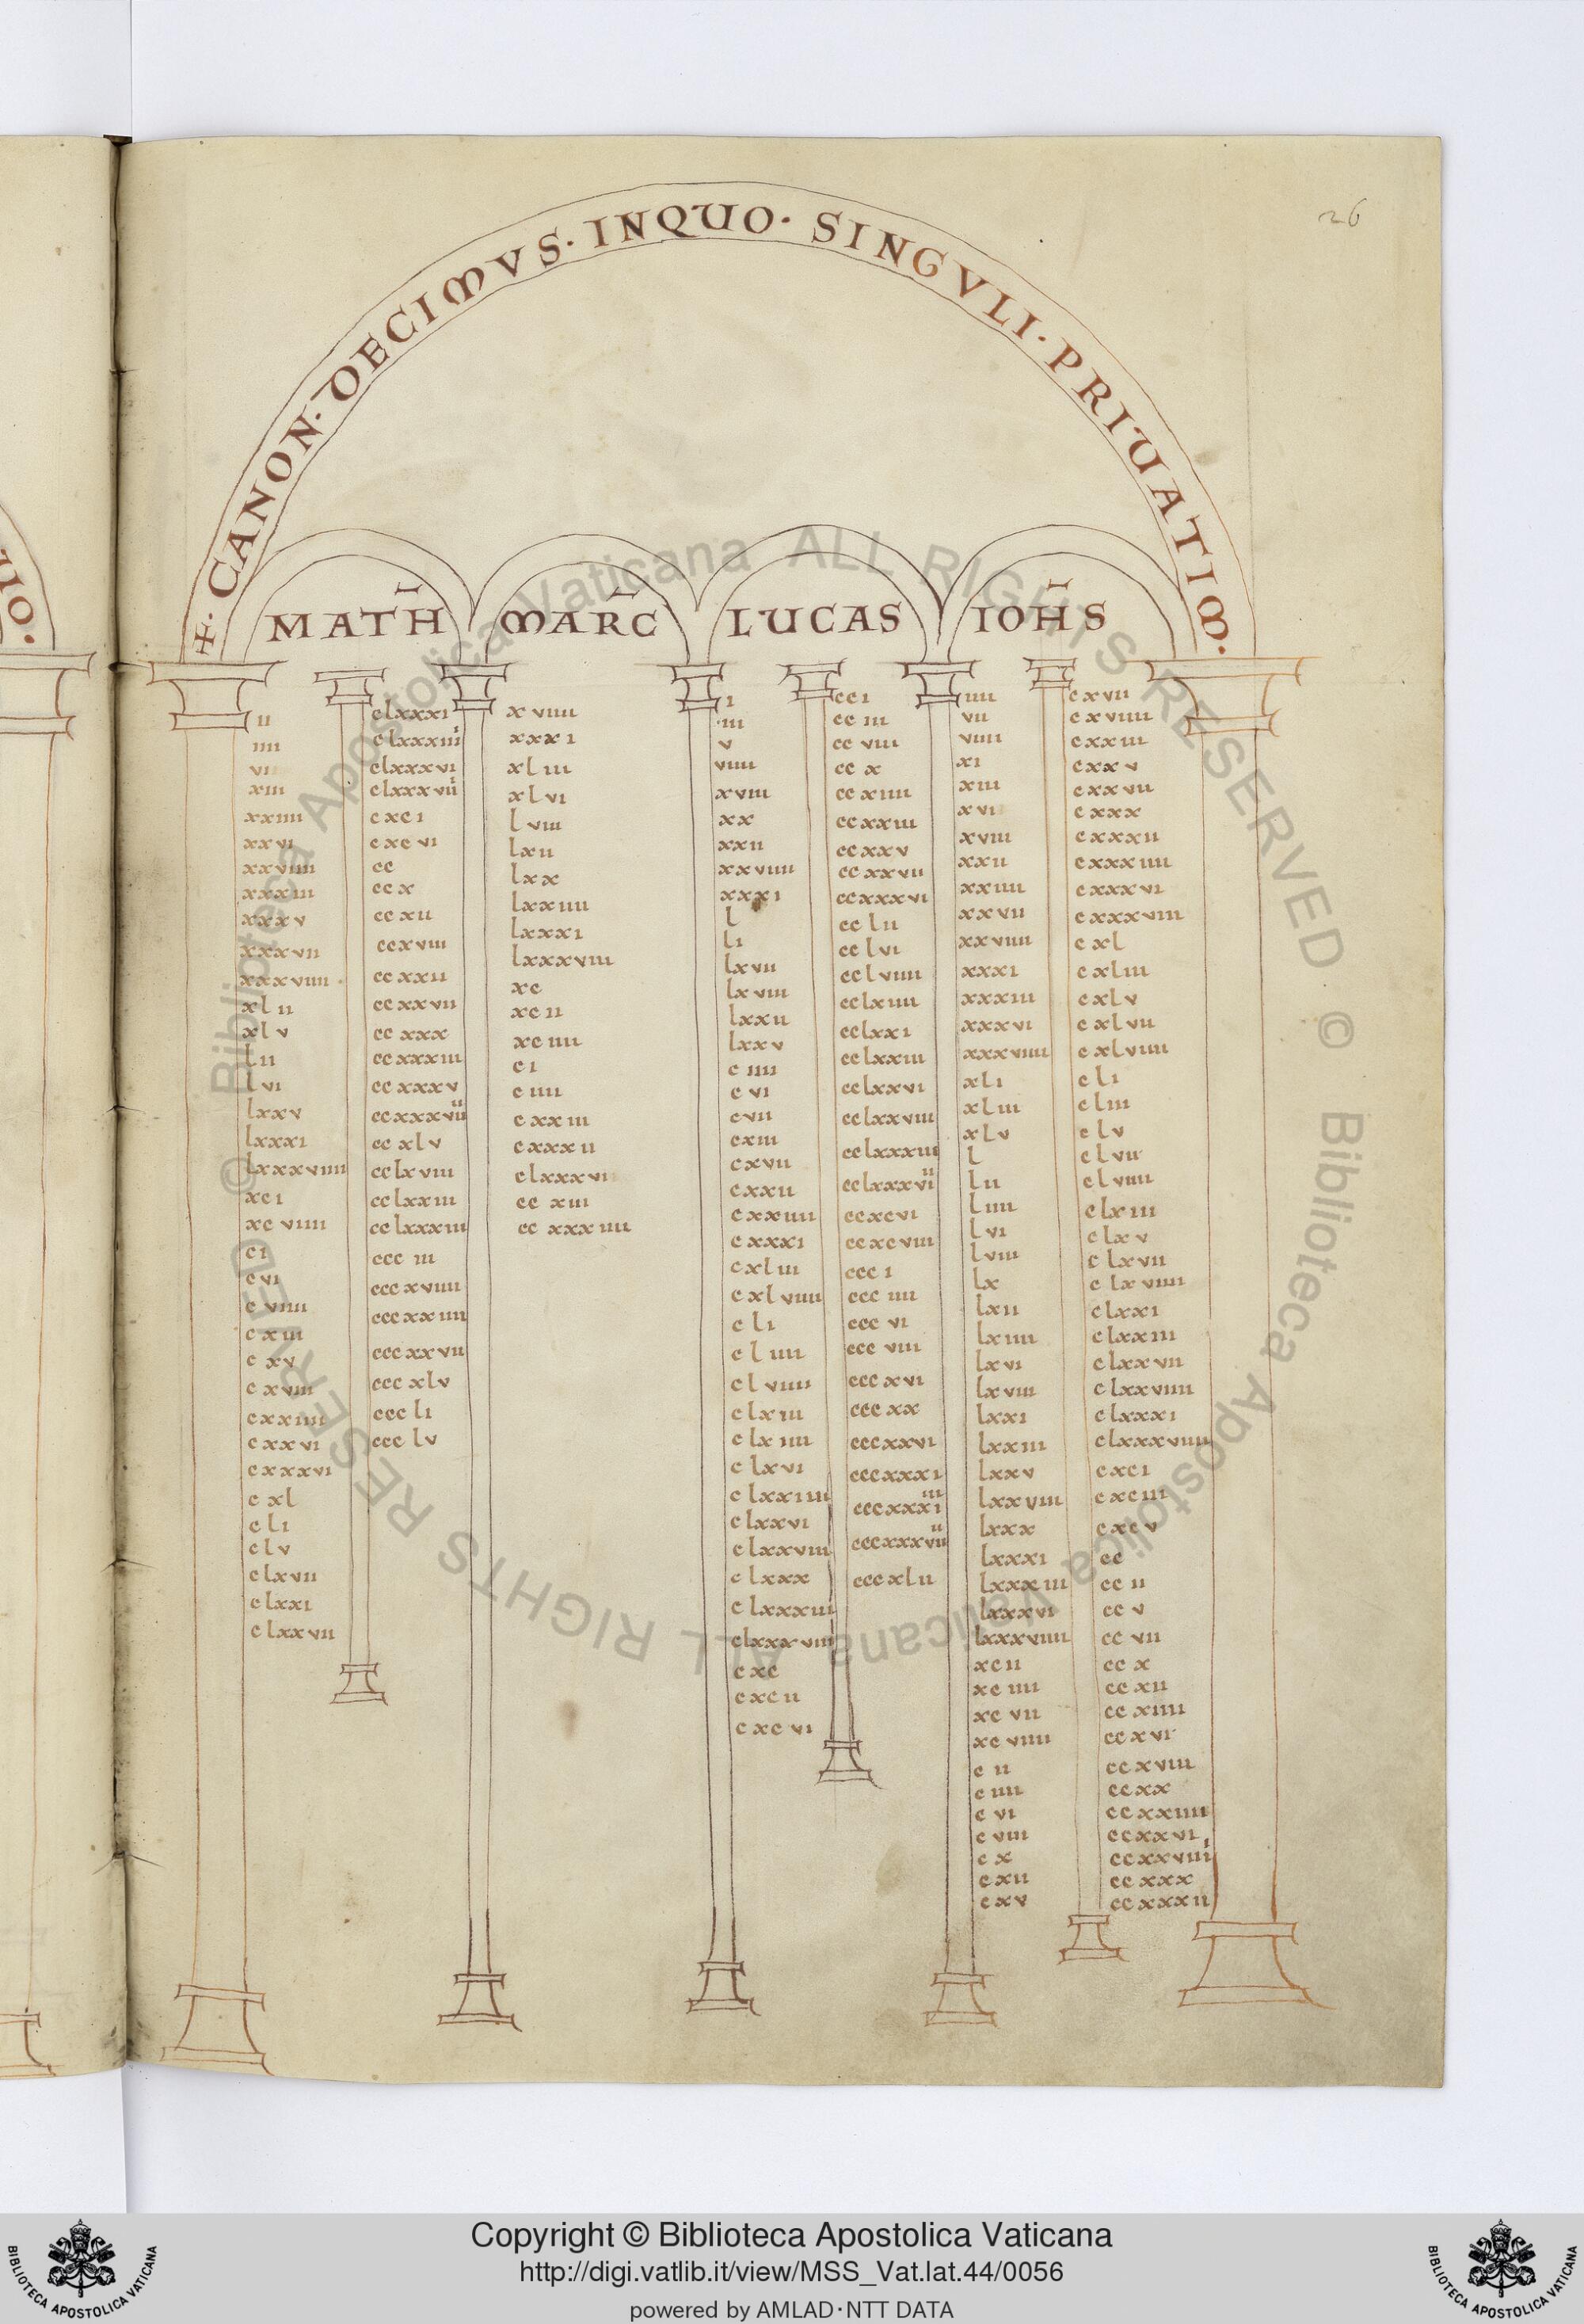 26
+· CANON· DECIMVS· INQUO· SINGVLI· PRIUATIM·
MATH̄
MARC̄
LUCAS
IOH̄S
ii
iiii
vi
xiii
xxiiii
xxvi
xxviiii
xxxiii
xxxv
xxxvii
xxxviiii
xlii
xlv
lii
lvi
lxxv
lxxxi
lxxxviiii
xci
xcviiii
ci
cvi
cviiii
cxiii
cxv
cxviii
cxxiiii
cxxvi
cxxxvi
cxl
cli
clv
clxvii
clxxi
clxxvii
clxxxi
clxxxiiii
clxxxvi
clxxxviii
cxci
cxcvi
cc
ccx
ccxii
ccxviii
ccxxii
ccxxvii
ccxxx
ccxxxiii
ccxxxv
ccxxxviiii
ccxlv
cclxviii
cclxxiii
cclxxxiii
ccciii
cccxviiii
cccxxiiii
cccxxvii
cccxlv
cccli
ccclv
xviiii
xxxi
xliii
xlvi
lviii
lxii
lxx
lxxiiii
lxxxi
lxxxviii
xc
xcii
xciiii
ci
ciiii
cxxiii
cxxxii
clxxxvi
ccxiii
ccxxxiiii
i
·iii
v
viiii
xviii
xx
xxii
xxviiii
xxxi
l
li
lxvii
lxviii
lxxii
lxxv
ciiii
cvi
cvii
cxiii
cxvii
cxxii
cxxiiii
cxxxi
cxliii
cxlviiii
cli
cliiii
clviiii
clxiii
clxiiii
clxvi
clxxiiii
clxxvi
clxxviii
clxxx
clxxxiii
clxxxviii
cxc
cxcii
cxcvi
cci
cciii
ccviii
ccx
ccxiiii
ccxxiii
ccxxv
ccxxvii
ccxxxvi
cclii
cclvi
cclviiii
cclxiiii
cclxxi
cclxxiii
cclxxvi
cclxxviii
cclxxxiii
cclxxxviii
ccxcvi
ccxcviii
ccci
ccciiii
cccvi
cccviii
cccxvi
cccxx
cccxxvi
cccxxxi
cccxxxiiii
cccxxxviiii
cccxlii
iiii
vii
viiii
xi
xiii
xvi
xviii
xxii
xxiiii
xxvii
xxviiii
xxxi
xxxiii
xxxvi
xxxviiii
xli
xliii
xlv
l
lii
liiii
lvi
lviii
lx
lxii
lxiiii
lxvi
lxviii
lxxi
lxxiii
lxxv
lxxviii
lxxx
lxxxi
lxxxiii
lxxxvi
lxxxviiii
xcii
xciiii
xcvii
xcviiii
cii
ciiii
cvi
cviii
cx
cxii
cxv
cxvii
cxviiii
cxxiii
cxxv
cxxvii
cxxx
cxxxii
cxxxiiii
cxxxvi
cxxxviii
cxl
cxliii
cxlv
cxlvii
cxlviiii
cli
cliii
clv
clvii
clviiii
clxiii
clxv
clxvii
clxviiii
clxxi
clxxiii
clxxvii
clxxviiii
clxxxi
clxxxviiii
cxci
cxciii
cxcv
cc
ccii
ccv
ccvii
ccx
ccxii
ccxiiii
ccxvi
ccxviii
ccxx
ccxxiiii
ccxxvi
ccxxviiii
ccxxx
ccxxxii
© Biblioteca Apostolica Vaticana ALL RIGHTS RESERVED
© Biblioteca Apostolica Vaticana ALL RIGHTS RESERVED
Copyright © Biblioteca Apostolica Vaticana
http://digi.vatlib.it/view/MSS_Vat.lat.44/0056
powered by AMLAD·NTT DATA
BIBLIOTECA APOSTOLICA VATICANA
BIBLIOTECA APOSTOLICA VATICANA